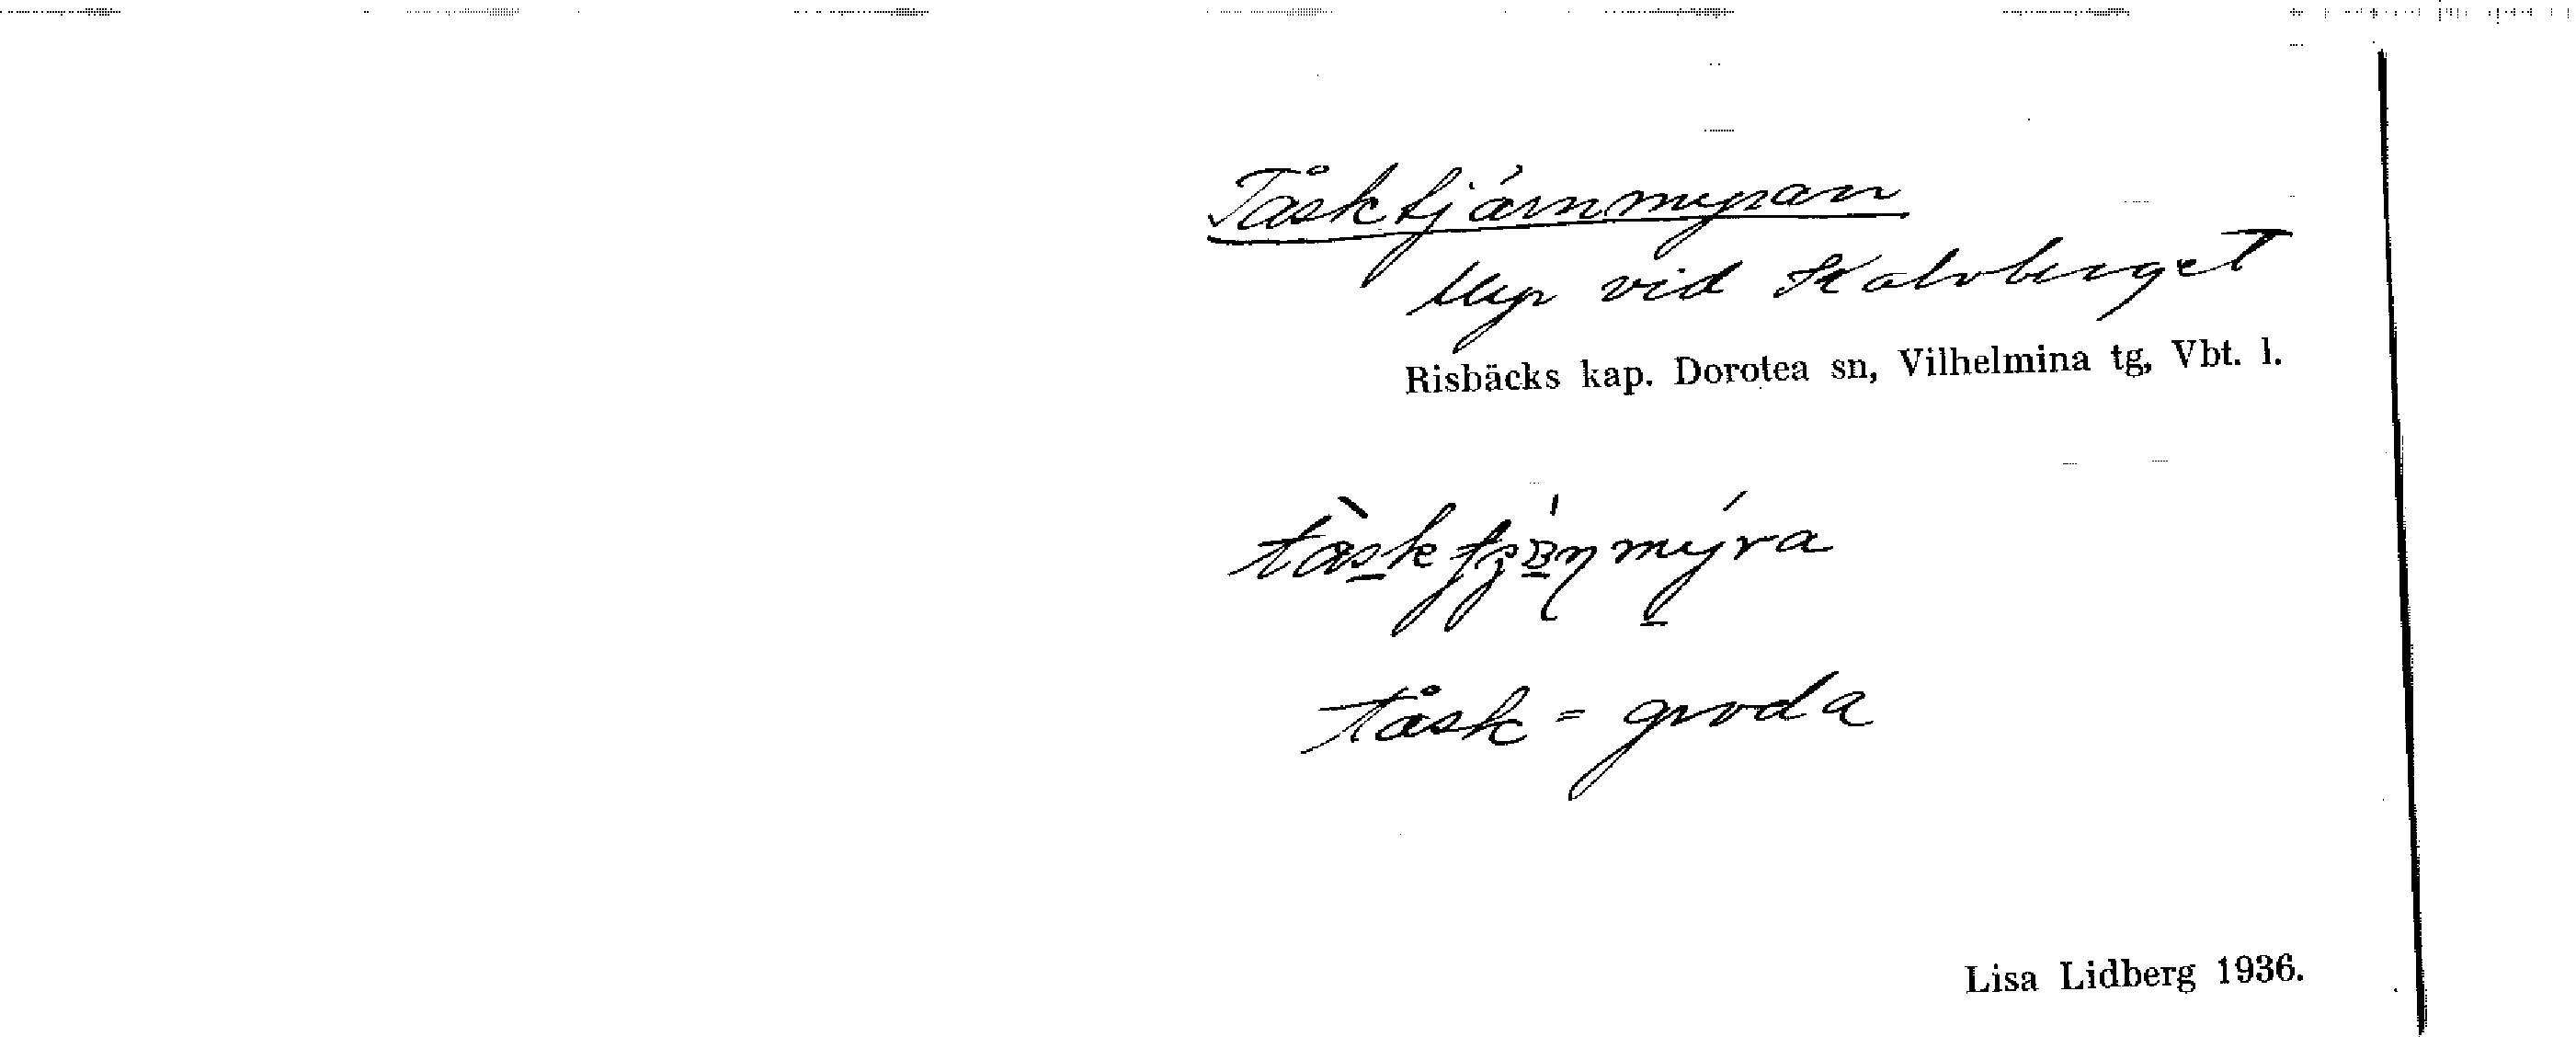 Tåsktjärnmyran
Myr vid Kalvberget
Risbäcks kap. Dorotea sn, Vilhelmina tg, Vbt. l.
tåsk = groda
Lisa Lidberg 1936.